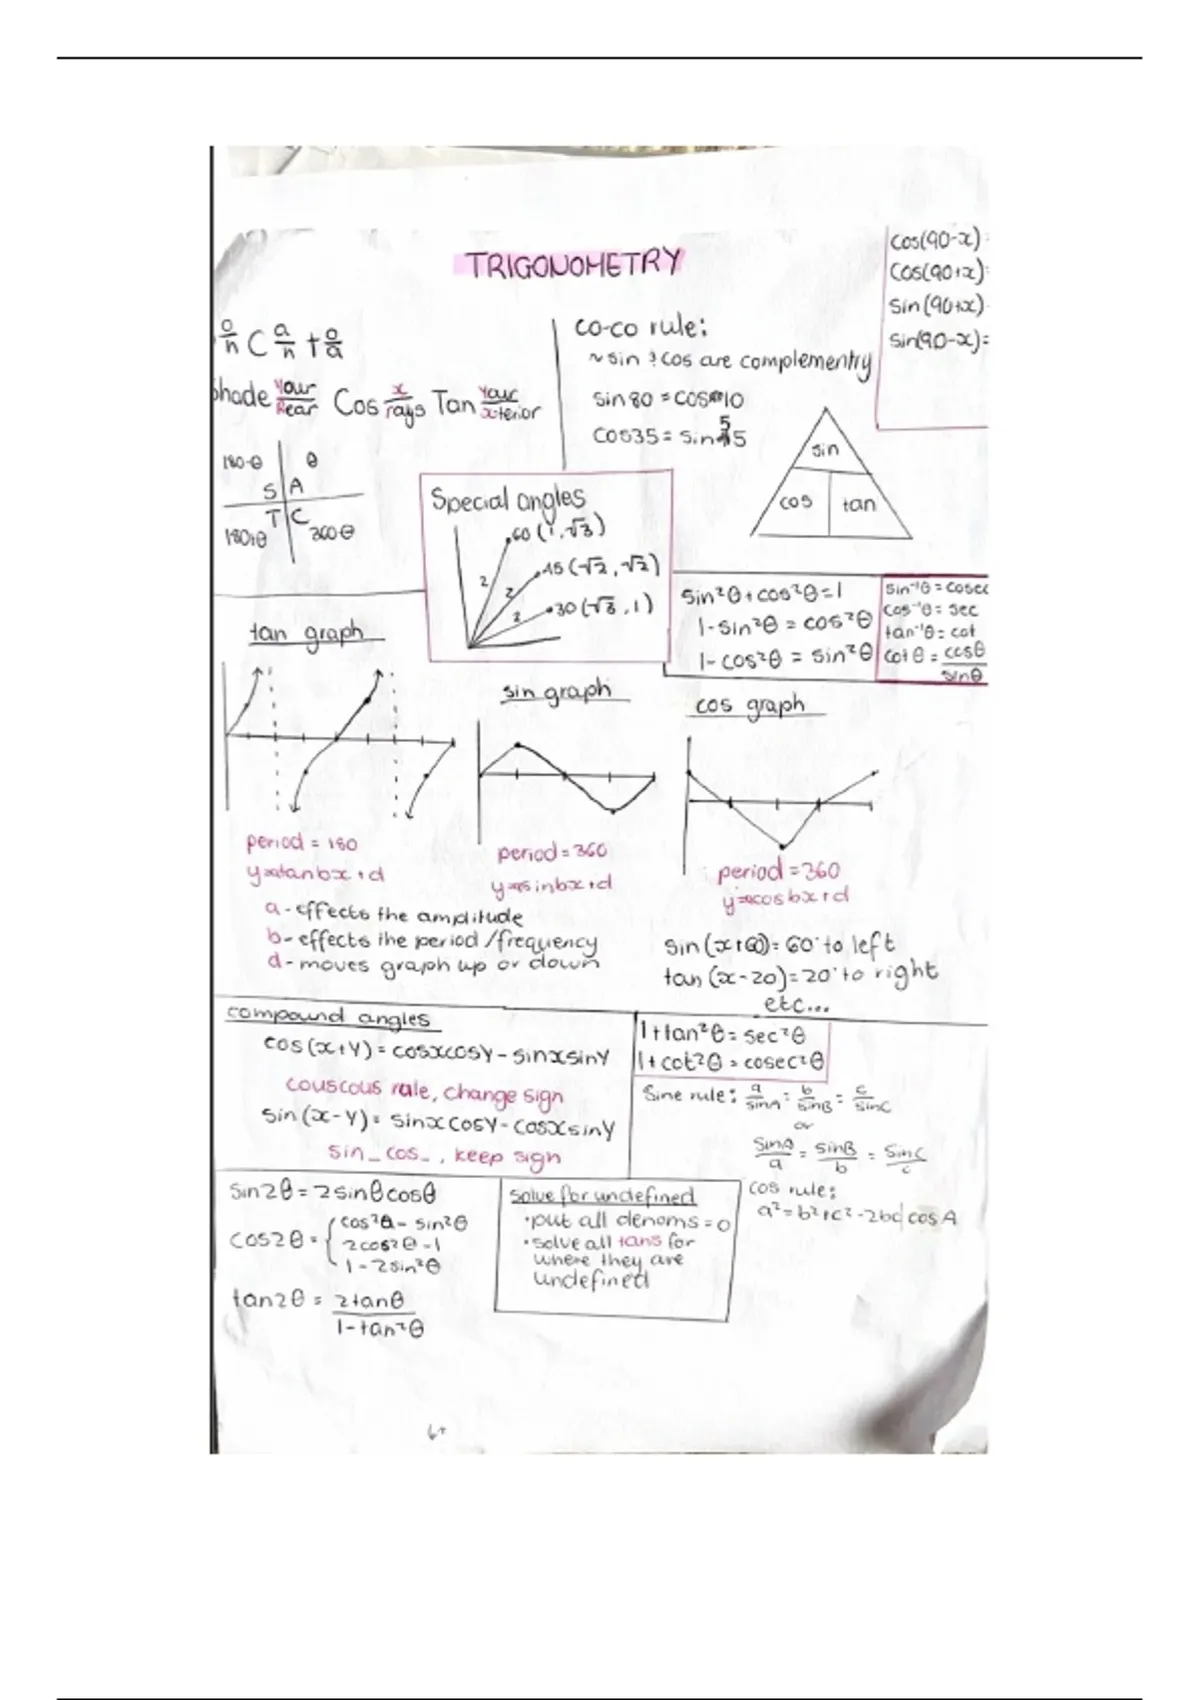 TRIGONOMETRY
cos(90-x)
cos(90+x)
sin(90+x)
sin(90-x)=
o/h C a/h t o/a
Shade Your/Rear Cos x/rays Tan Your/xterior
co-co rule:
~ sin & cos are complementry
sin80 = cos 10
cos35 = sin 55
sin
cos tan
180-θ θ
S A
T C
180+θ 360-θ
Special angles
60 (1,√3)
45 (√2,√2)
30 (√3,1)
2
2
2
sin²θ+cos²θ=1
1-sin²θ = cos²θ
1-cos²θ = sin²θ
sin⁻¹θ = cosec
cos⁻¹θ = sec
tan⁻¹θ = cot
cotθ = cosθ/sinθ
tan graph
sin graph
cos graph
period = 180
y=atanbx+d
period = 360
y=asinbx+d
period = 360
y=acosbx+d
a - effects the amplitude
b - effects the period/frequency
d - moves graph up or down
sin(x+60)= 60° to left
tan(x-20)= 20° to right
etc...
compound angles
cos(x+y)= cosxcosy - sinxsiny
couscous rule, change sign
sin(x-y)= sinxcosy - cosxsiny
sin_cos_, keep sign
1+tan²θ = sec²θ
1+cot²θ = cosec²θ
Sine rule: a/sinA = b/sinB = c/sinC
or
sinA/a = sinB/b = sinC/c
cos rule:
a²=b²+c²-2bc cosA
sin2θ = 2sinθcosθ
cos2θ = { cos²θ - sin²θ
2cos²θ - 1
1 - 2sin²θ
tan2θ = 2tanθ/1-tan²θ
solve for undefined
• put all denoms = 0
• solve all tans for
where they are
undefined